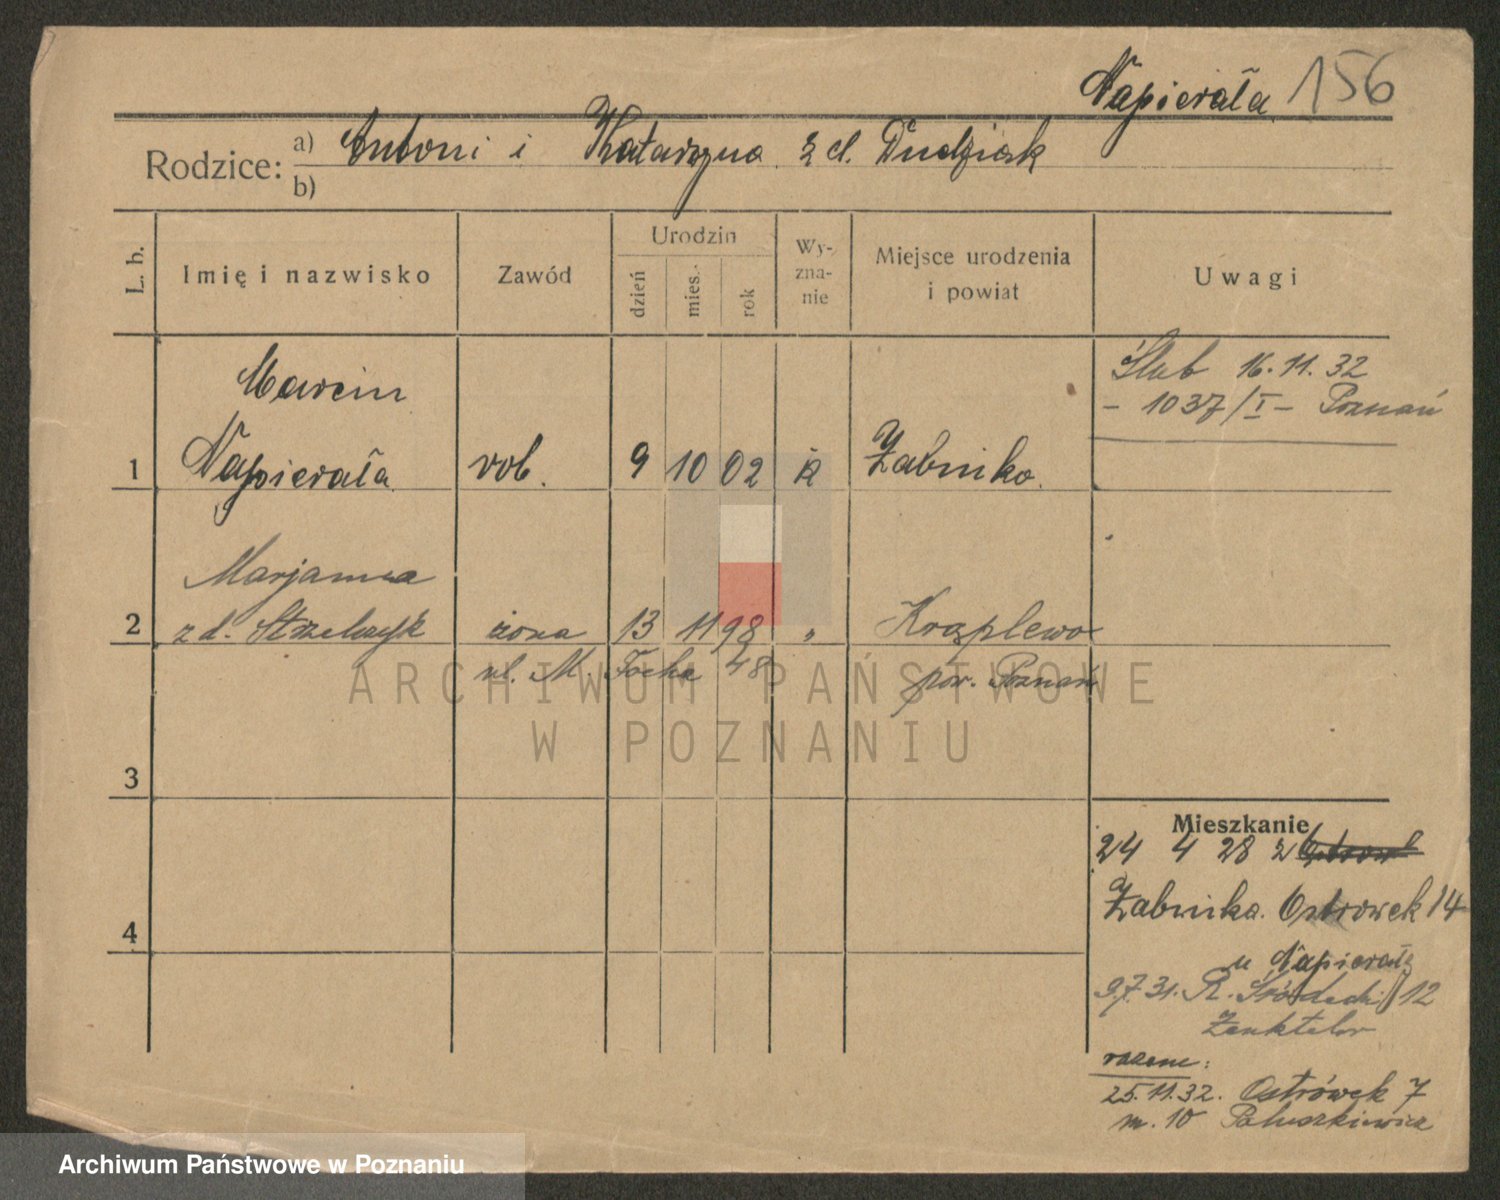 Napierała 156
Rodzice: a) Antoni i Katarzyna z d. Dudziak
b)
L. b. Imię i nazwisko Zawód Urodzin dzień mies. rok Wyznanie Miejsce urodzenia i powiat Uwagi
Ślub 16.11.32
- 1037/I - Poznań
Marcin
1 Napierała rob. 9 10 02 Żabniko.
Marjanna
2 z d. Strzelczyk żona 13 11 98 " Krąplewo
ul. M. Focha 48 pow. Poznań
3
4
Mieszkanie
24 4 28 z
Żabnika. Ostrowek 14
u Napierała
9.7.31. R. Śródecki 12
Zenkteler
razem:
25.11.32. Ostrówek 7
m. 10 Paluszkiewicz
ARCHIWUM PAŃSTWOWE
W POZNANIU
Archiwum Państwowe w Poznaniu